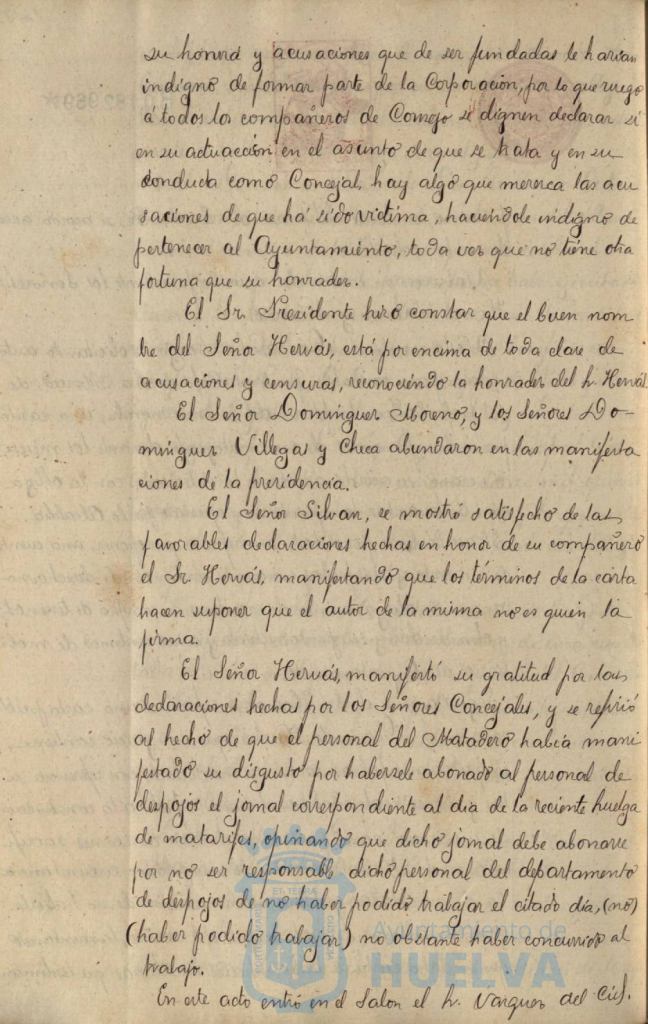 su honra y acusaciones que de ser fundadas le harian
indigno de formar parte de la Corporación, por lo que ruego
á todos los compañeros de Concejo se dignen declarar si
en su actuación en el asunto de que se trata y en su
conducta como Concejal, hay algo que merezca las acu
saciones de que há sido victima, haciendole indigno de
pertenecer al Ayuntamiento, toda vez que no tiene otra
fortuna que su honradez.
El Sr. Presidente hizo constar que el buen nom
bre del Señor Hervás, está por encima de toda clase de
acusaciones y censuras, reconociendo la honradez del Sr. Hervás.
El Señor Dominguez Moreno, y los Señores Do-
minguez Villegas y Checa abundaron en las manifesta
ciones de la presidencia.
El Señor Silvan, se mostró satisfecho de las
favorables declaraciones hechas en honor de su compañero
el Sr. Hervás, manifestando que los términos de la carta
hacen suponer que el autor de la misma no es quien la
firma.
El Señor Hervás, manifestó su gratitud por las
declaraciones hechas por los Señores Concejales, y se refirió
al hecho de que el personal del Matadero habia mani
festado su disgusto por habersele abonado al personal de
despojos el jornal correspondiente al dia de la reciente huelga
de matarifes, opinando que dicho jornal debe abonarse
por no ser responsable dicho personal del departamento
de despojos de no haber podido trabajar el citado dia, (no)
(haber podido trabajar) no obstante haber concurrido al
trabajo.
En este acto entró en el Salon el Sr. Vazquez del Cid.
Ayuntamiento de
HUELVA